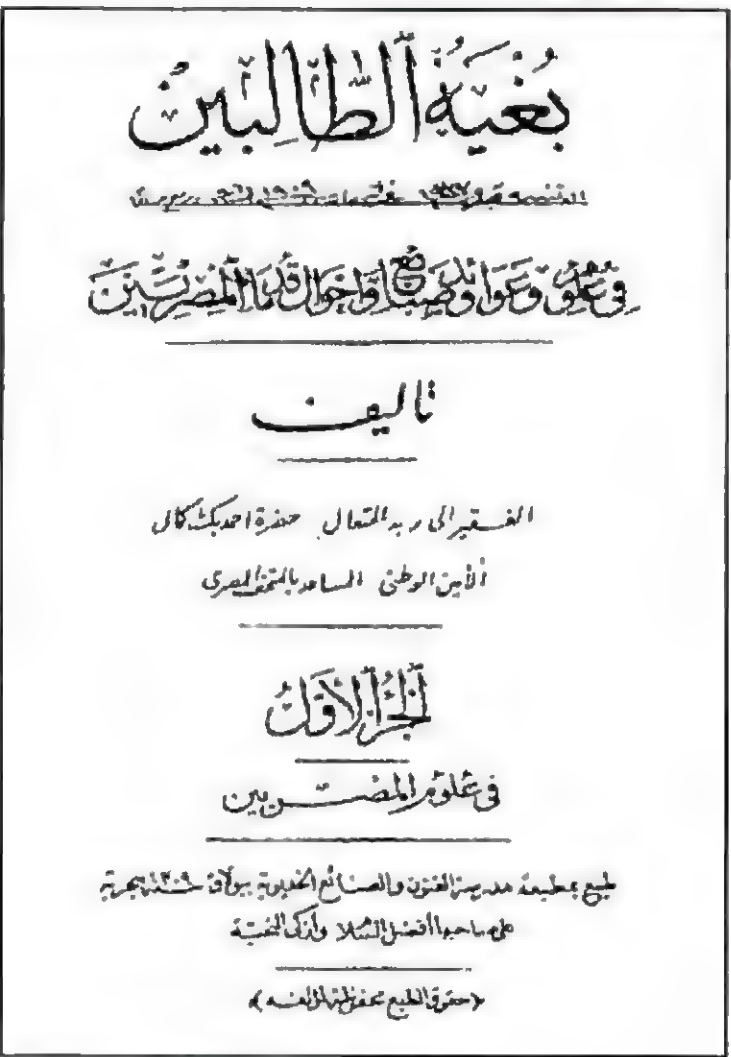 بُغْيَةُ الطَّالِبِين
فى علوم وعوائد وصنائع وأحوال قدماء المصريين
تاليف
الفقير الى ربه المتعال حضرة احمد بك كمال
الأمين الوطنى المساعد بالمتحف المصرى
الجزء الأول
فى علوم المصريين
طبع بمطبعة مدرسة الفنون والصنائع الخديوية ببولاق سنة ١٣٠٩ هجرية
على صاحبها أفضل السلام وأزكى التحية
(حقوق الطبع محفوظة لمؤلفه)